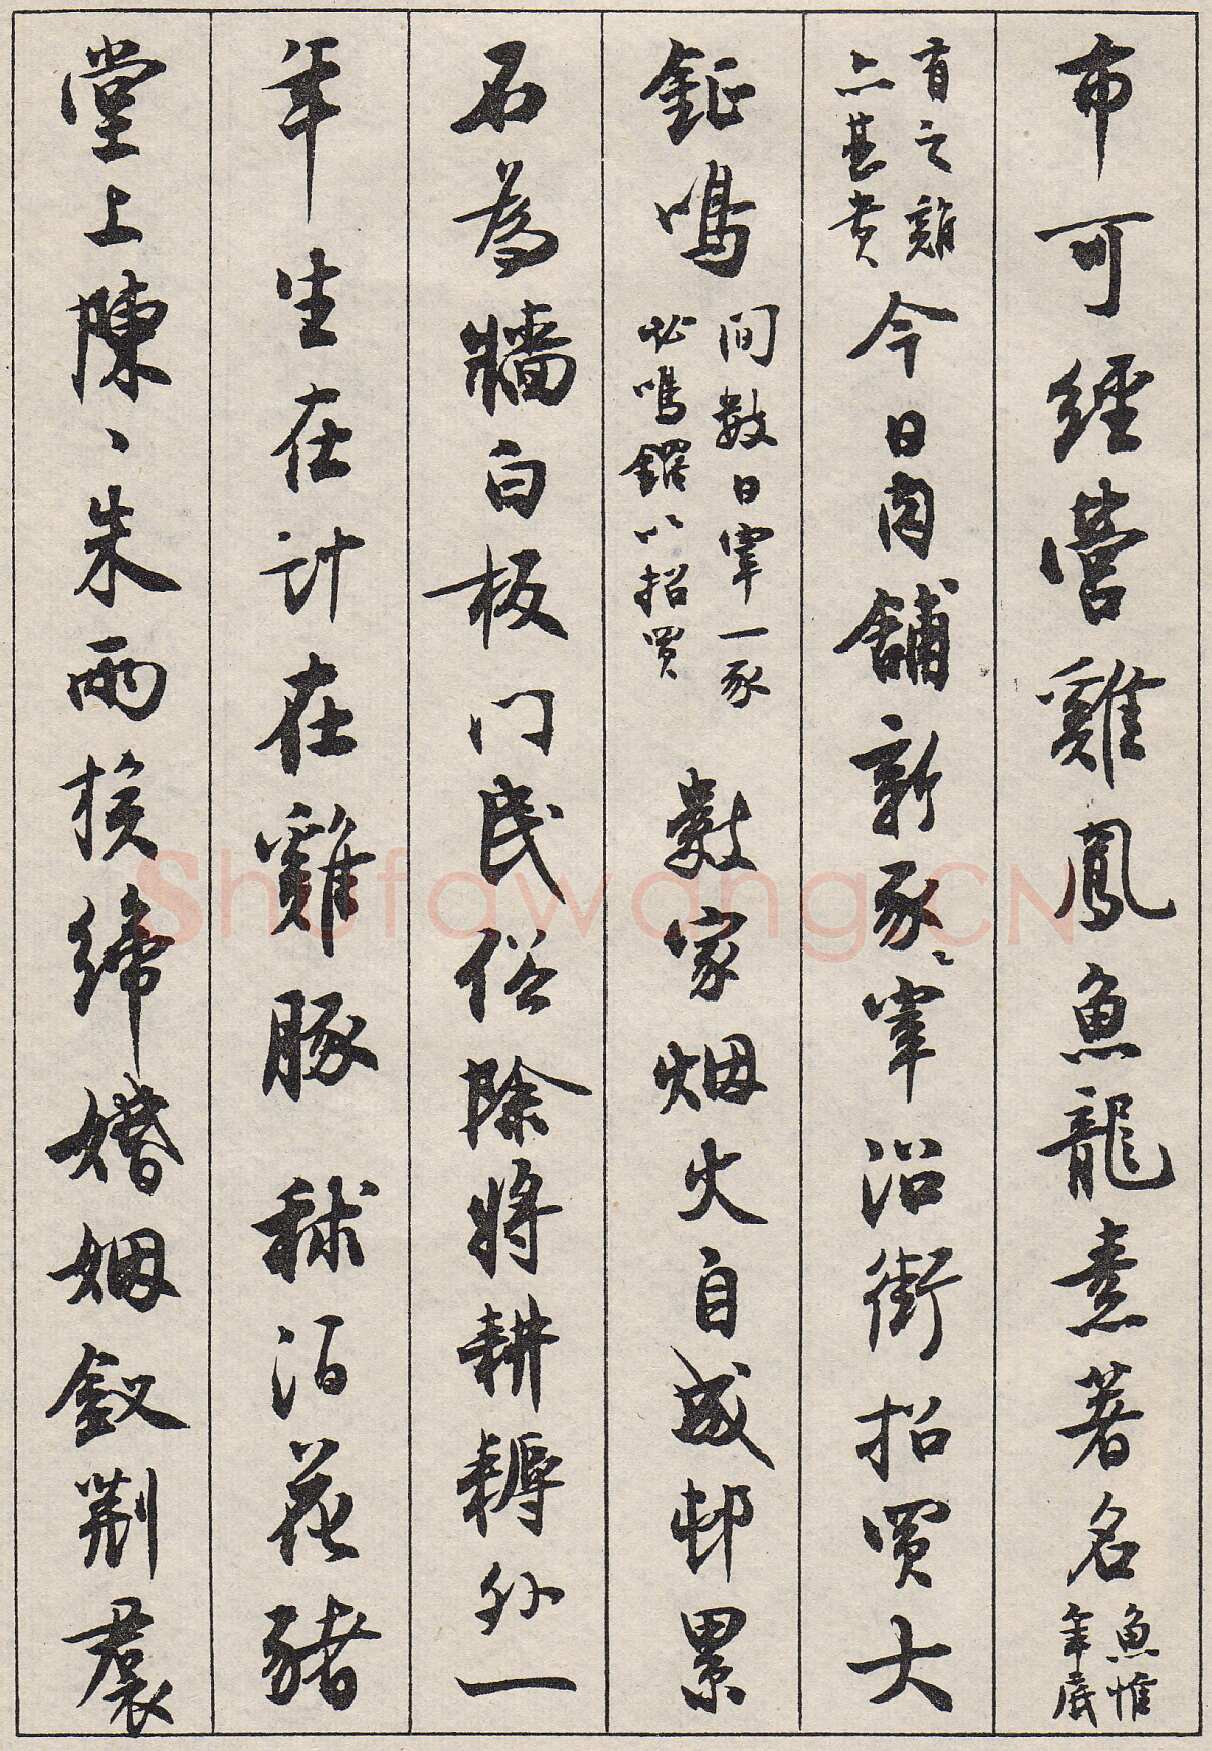 布可經營雞鳳魚龍素著名魚惟年底
有之雞亦甚貴今日肉舖新豕〻宰沿街招買大
鉦鳴间數日宰一豕必鳴鑼以招買數家烟火自成邨累
石為牆白板门民俗除將耕耨外一
年生在計在雞豚秫酒花豬
堂上陳〻朱兩族締婚姻釵荆裙
Shufawang.CN